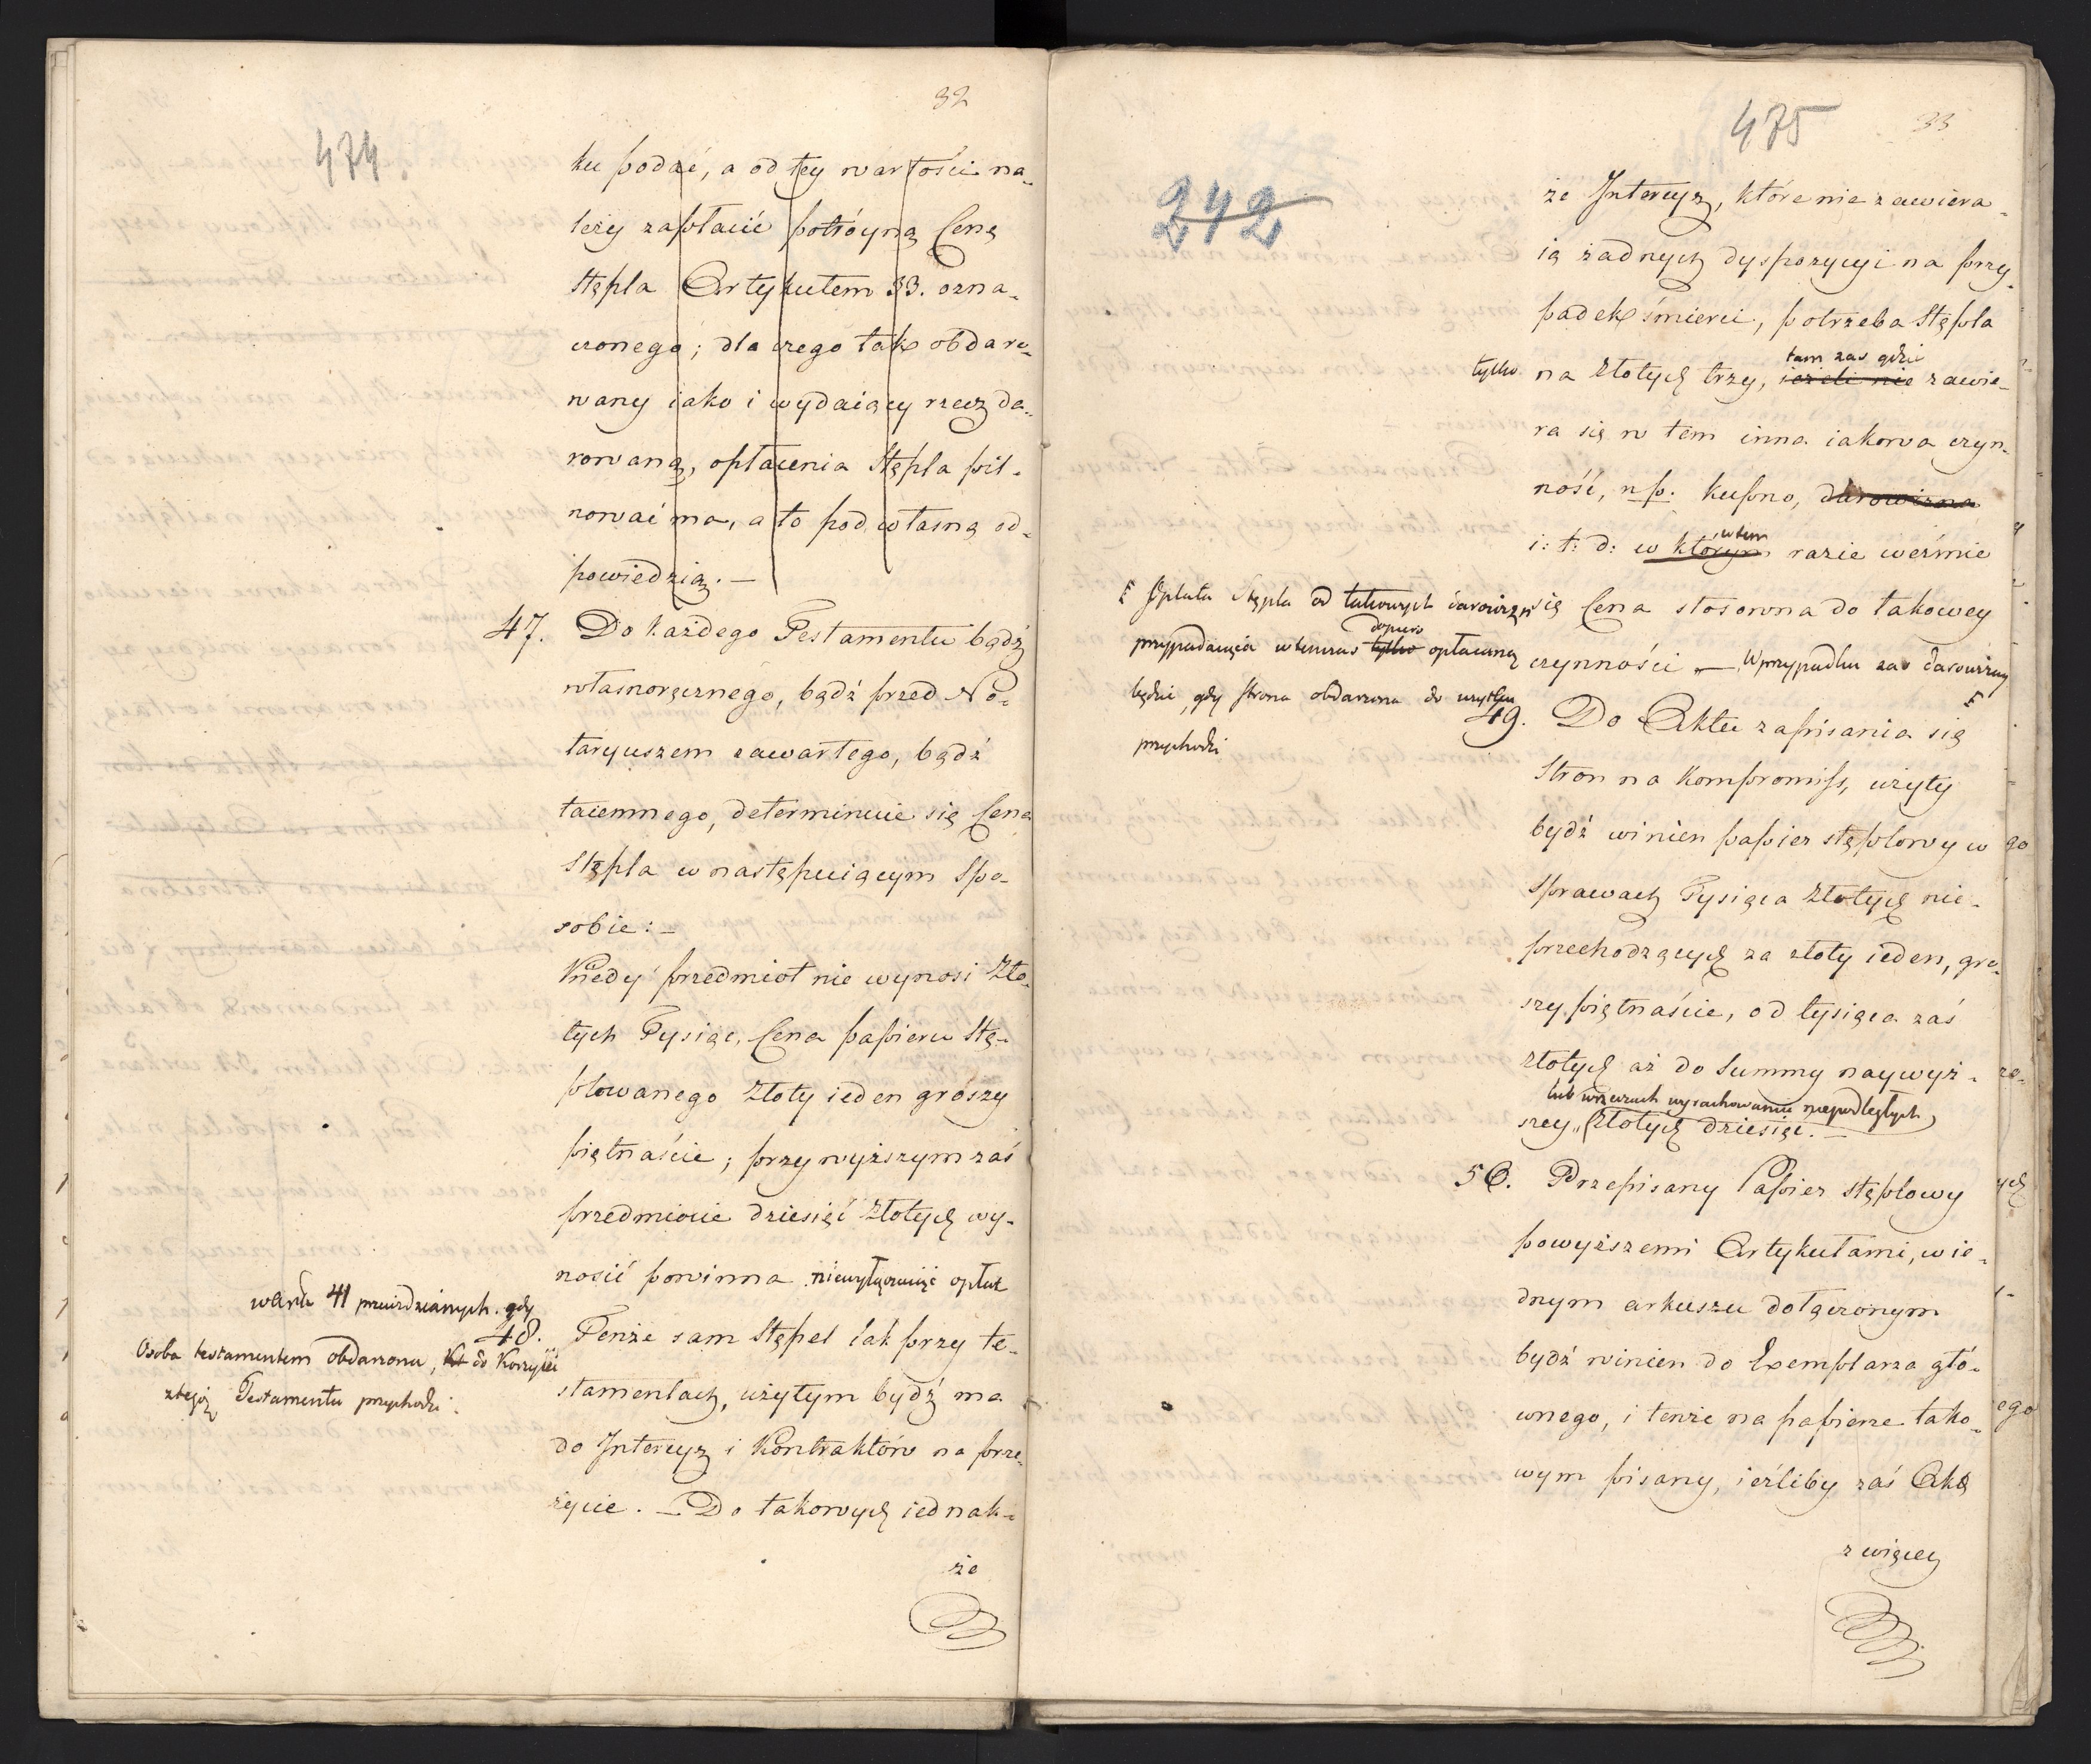 32
474.
ku podać, a od tey wartości na-
leży zapłacić potróyną Cenę
Stępla Artykułem 33. ozna-
czonego; dla czego tak obdaro-
wany iako i wydaiący rzecz da-
rowaną, opłacenia Stępla pil-
nować ma, a to pod własną od-
powiedzią. —
47. Do każdego Testamentu bądź
własnoręcznego, bądź przed No-
taryuszem zawartego, bądź
taiemnego, determinuie się Cena
Stępla w następuiącym Spo-
sobie: —
Kiedy przedmiot nie wynosi Zło-
tych Tysiąc, Cena papieru Stę-
plowanego Złoty ieden groszy
piętnaście; przy wyższym zaś
przedmiocie dziesięć Złotych wy-
nosić powinna niewyłączaiąc opłat
w Artle 41 przewidzianych. gdy
Osoba testamentem obdarzona, do Korzyści
z tegoż Testamentu przychodzi.
48. Tenże sam Stępel iak przy te-
stamentach, użytym bydź ma
do Intercyz i Kontraktów na prze-
życie. — Do takowych iednak-
że
475
33
242
że Intercyz, które nie zawiera-
ią żadnych dyspozycyi na przy-
padek śmierci, potrzeba Stępla
tam zaś gdzie
tylko na Złotych trzy, ieżeli nie zawie-
ra się w tem inna iakowa czyn-
ność, np. kupno, darowizna
w tem
i: t: d: w którym razie weźmie
się Cena stosowna do takowey
czynności — W przypadku zaś darowizny
Opłata Stępla od takowych darowizn
dopiero
przypadaiąca wtenczas tylko opłaconą
będzie, gdy strona obdarzona do użytku
przychodzi
49. Do Aktu zapisania się
Stron na Kompromiss, użyty
bydź winien papier stęplowy w
Sprawach Tysiąca Złotych nie-
przechodzących za złoty ieden, gro-
szy piętnaście, od tysiąca zaś
Złotych aż do Summy naywyż-
lub w rzeczach wyrachowaniu niepodległych
szey, Złotych dziesięć. —
50. Przepisany Papier stęplowy
powyższemi Artykułami, w ie-
dnym arkuszu dołączonym
bydź winien do Exemplarza głó-
wnego, i tenże na papierze tako-
wym pisany, ieźliby zaś Akt
z więcey